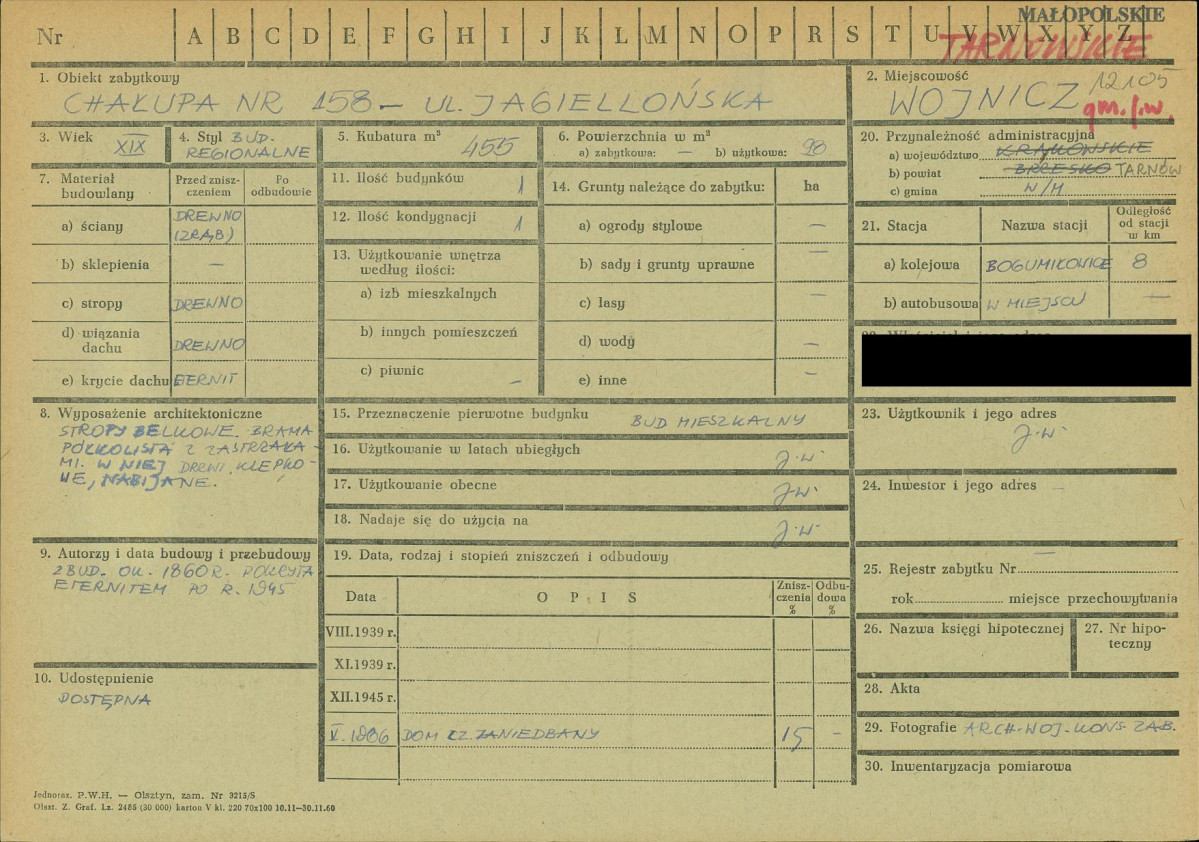 MAŁOPOLSKIE
Nr A B C D E F G H I J K L M N O P R S T U V W X Y Z
TARNOWSKIE
1. Obiekt zabytkowy
CHAŁUPA NR 158 – UL. JAGIELLOŃSKA
2. Miejscowość
WOJNICZ 12105
gm. j.w.
3. Wiek
XIX
4. Styl BUD.
REGIONALNE
5. Kubatura m³
455
6. Powierzchnia w m²
a) zabytkowa: — b) użytkowa: 98
7. Materiał budowlany
Przed zniszczeniem
Po odbudowie
a) ściany DREWNO
(ZRĄB)
b) sklepienia —
c) stropy DREWNO
d) wiązania dachu DREWNO
e) krycie dachu ETERNIT
8. Wyposażenie architektoniczne
STROPY BELKOWE. BRAMA
PÓŁKOLISTA Z ZASTRZAŁA-
MI. W NIEJ DRZWI KLEPKO-
WE, NABIJANE.
9. Autorzy i data budowy i przebudowy
ZBUD. OK. 1860 R. POKRYTA
ETERNITEM PO R. 1945
10. Udostępnienie
DOSTĘPNA
11. Ilość budynków 1
12. Ilość kondygnacji 1
13. Użytkowanie wnętrza
według ilości:
a) izb mieszkalnych
b) innych pomieszczeń
c) piwnic —
14. Grunty należące do zabytku: ha
a) ogrody stylowe —
b) sady i grunty uprawne —
c) lasy —
d) wody —
e) inne —
15. Przeznaczenie pierwotne budynku BUD MIESZKALNY
16. Użytkowanie w latach ubiegłych J.W.
17. Użytkowanie obecne J.W.
18. Nadaje się do użycia na J.W.
19. Data, rodzaj i stopień zniszczeń i odbudowy
Data O P I S Zniszczenia % Odbudowa %
VIII.1939 r.
XI.1939 r.
XII.1945 r.
V. 1966 DOM CZ. ZANIEDBANY 15 –
20. Przynależność administracyjna
a) województwo KRAKOWSKIE
b) powiat BRZESKO TARNÓW
c) gmina W/M
21. Stacja Nazwa stacji Odległość od stacji w km
a) kolejowa BOGUMIŁOWICE 8
b) autobusowa W MIEJSCU —
23. Użytkownik i jego adres
J.W.
24. Inwestor i jego adres
—
25. Rejestr zabytku Nr
rok miejsce przechowywania
26. Nazwa księgi hipotecznej
27. Nr hipoteczny
28. Akta
29. Fotografie ARCH. WOJ. KONS. ZAB.
30. Inwentaryzacja pomiarowa
Jednoraz. P.W.H. — Olsztyn, zam. Nr 3215/S
Olszt. Z. Graf. Lz. 2485 (30 000) karton V kl. 220 70x100 10.11—30.11.60